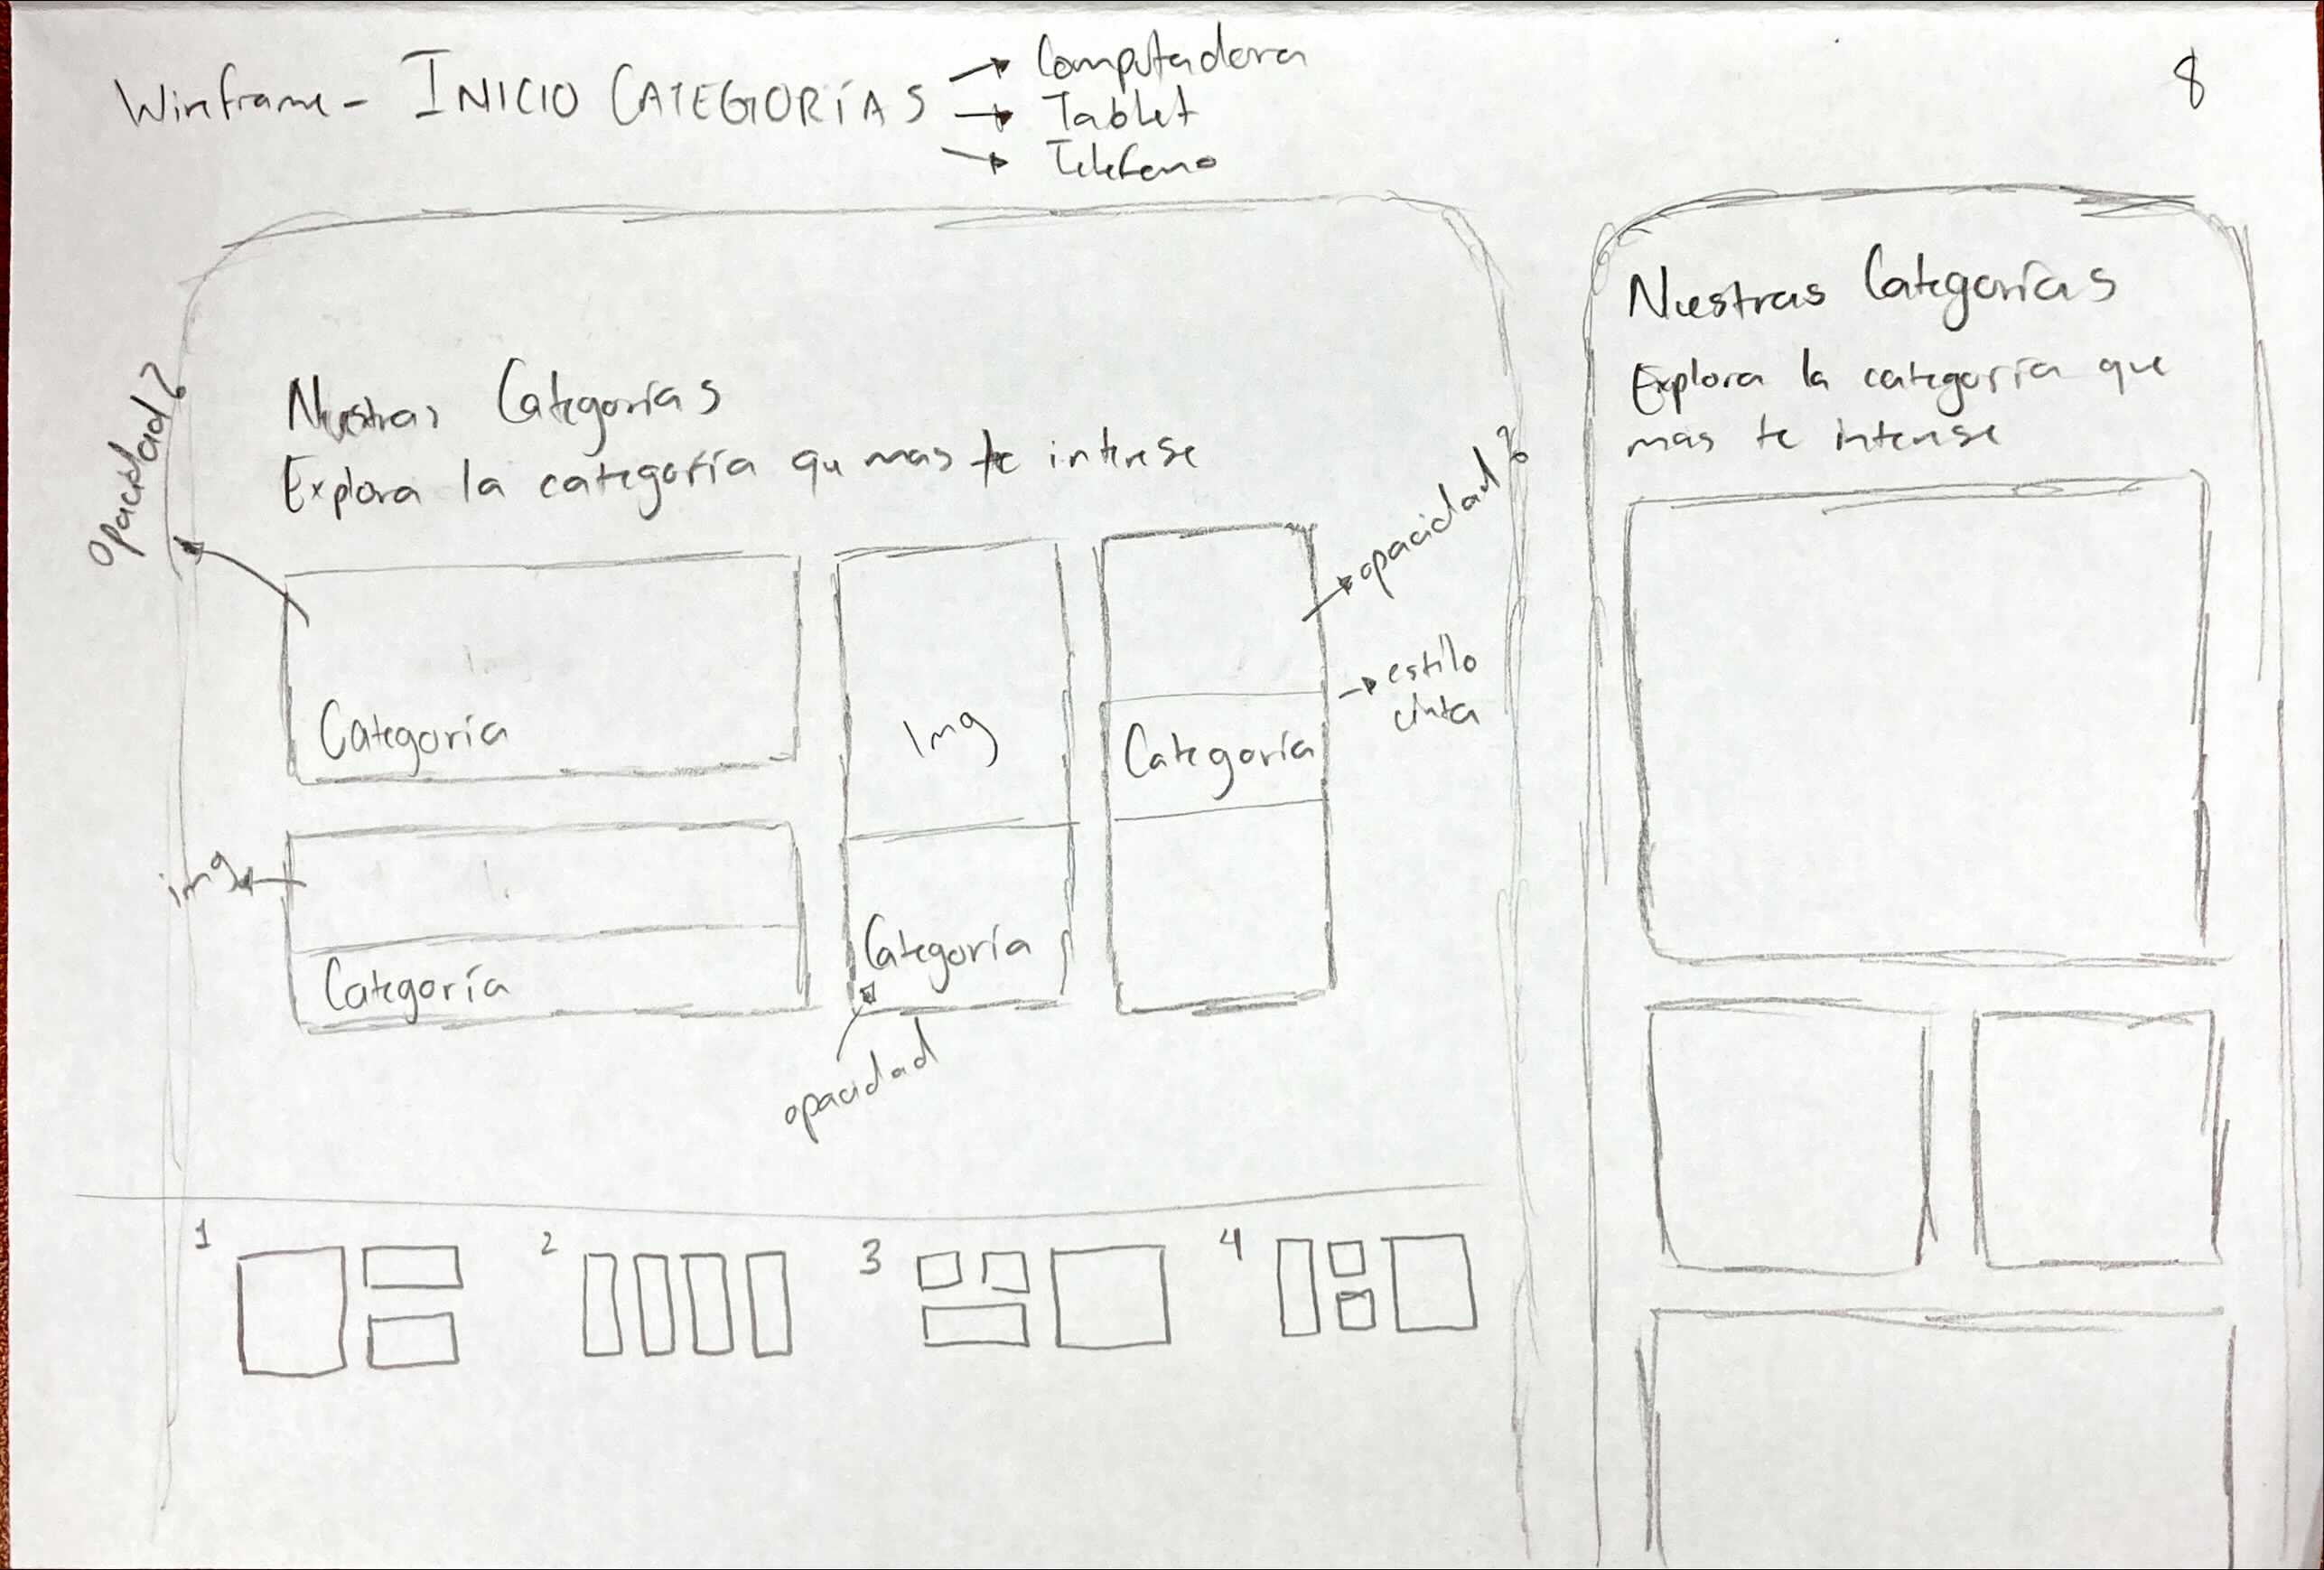 Wireframe - INICIO CATEGORÍAS
Computadora
Tablet
Telefono
8
opacidad?
Nuestras Categorías
Explora la categoría qu mas te interese
opacidad?
estilo
cinta
Categoría
Img
Categoría
img
Categoría
Categoría
opacidad
1
2
3
4
Nuestras Categorías
Explora la categoría que
mas te interese